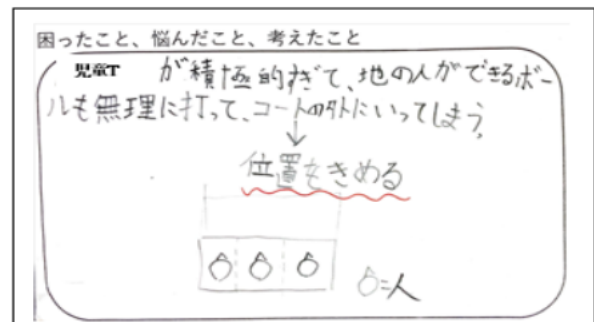 困ったこと、悩んだこと、考えたこと
児童T が積極的すぎて、地の人ができるボー
ルも無理に打って、コートの外にいってしまう。
↓
位置をきめる
=人